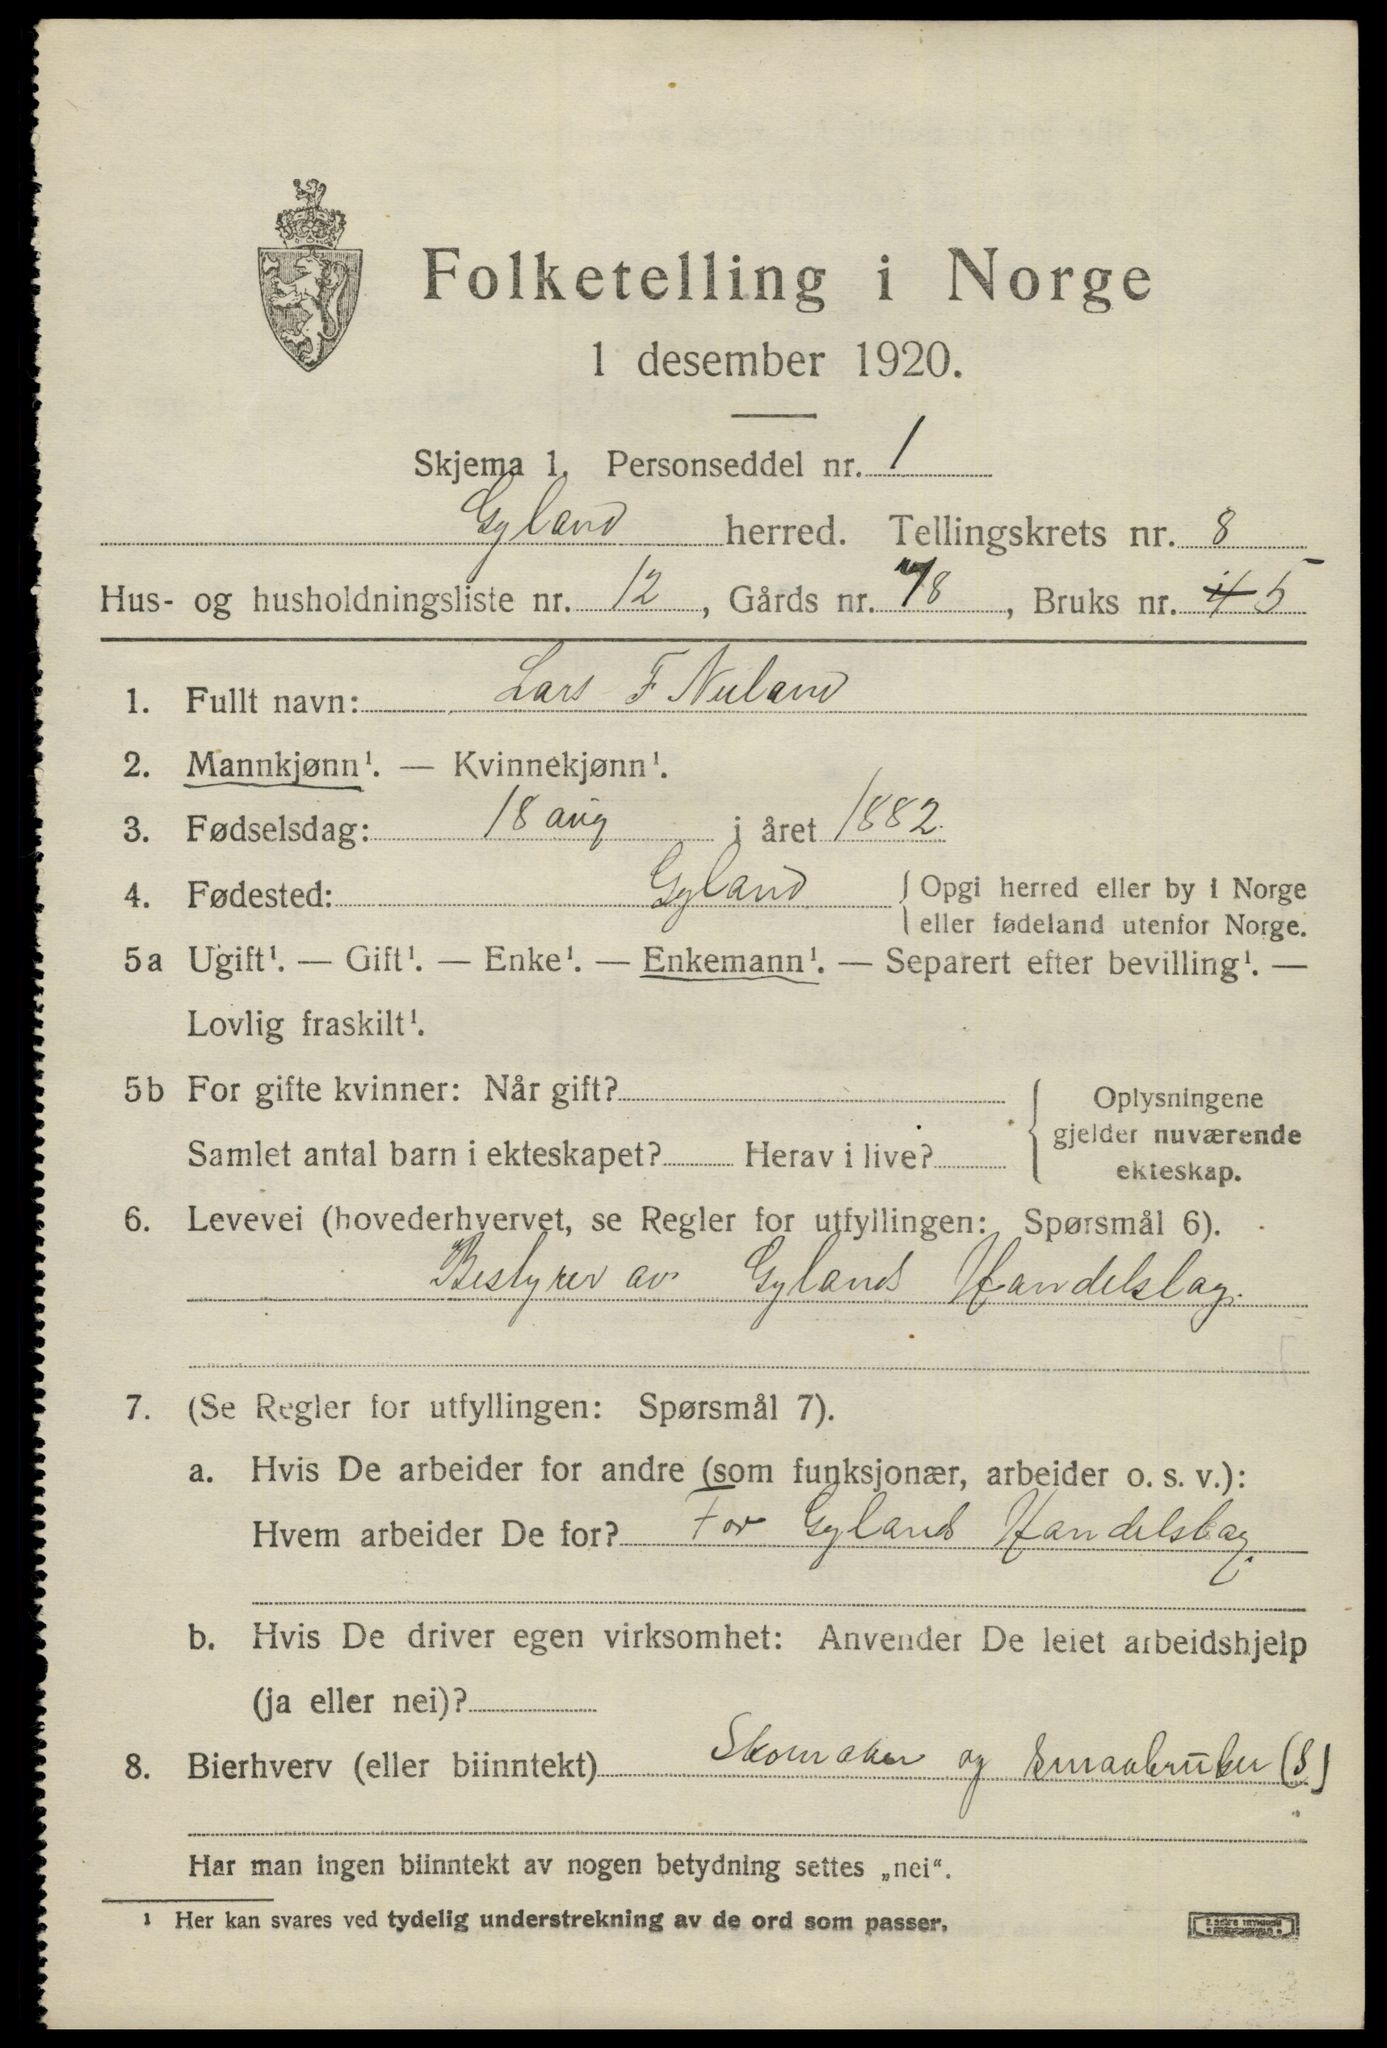 Folketelling i Norge
1 desember 1920.
Skjema 1. Personseddel nr. 1
Gyland herred. Tellingskrets nr. 8
Hus- og husholdningsliste nr. 12, Gårds nr. 78, Bruks nr. 4 5
1. Fullt navn: Lars F Nuland
2. Mannkjønn¹. — Kvinnekjønn¹.
3. Fødselsdag: 18 aug i året 1882.
4. Fødested: Gyland { Opgi herred eller by i Norge
eller fødeland utenfor Norge.
5a Ugift¹. — Gift¹. — Enke¹. — Enkemann¹. — Separert efter bevilling¹. —
Lovlig fraskilt¹.
5b For gifte kvinner: Når gift?
Samlet antal barn i ekteskapet? Herav i live?
Oplysningene
gjelder nuværende
ekteskap.
6. Levevei (hovederhvervet, se Regler for utfyllingen: Spørsmål 6).
Bestyrer av Gylands Handelslag.
7. (Se Regler for utfyllingen: Spørsmål 7).
a. Hvis De arbeider for andre (som funksjonær, arbeider o. s. v.):
Hvem arbeider De for? For Gylands Handelslag.
b. Hvis De driver egen virksomhet: Anvender De leiet arbeidshjelp
(ja eller nei)?
8. Bierhverv (eller biinntekt) Skomaker og smaabruker (S)
Har man ingen biinntekt av nogen betydning settes „nei“.
¹ Her kan svares ved tydelig understrekning av de ord som passer.